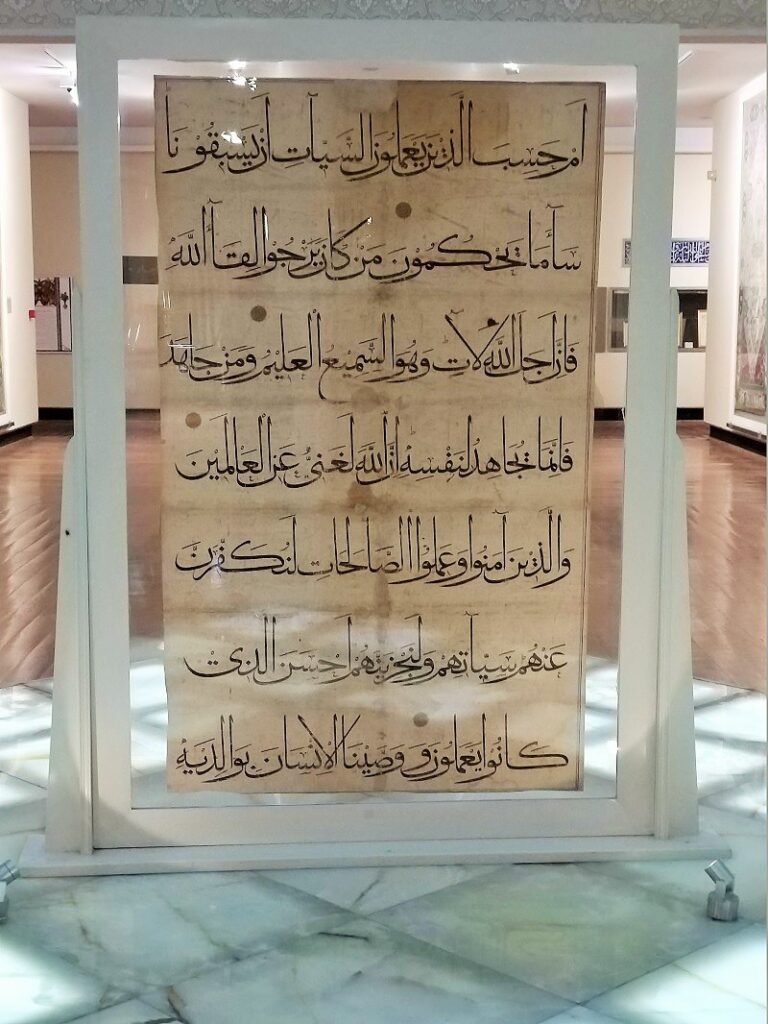 أَمْ حَسِبَ الَّذِينَ يَعْمَلُونَ السَّيِّآتِ أَنْ يَسْبِقُونَا
سَآءَ مَا يَحْكُمُونَ مَنْ كَانَ يَرْجُوا لِقَآءَ اللَّهِ
فَإِنَّ أَجَلَ اللَّهِ لَآتٍ وَهُوَ السَّمِيعُ الْعَلِيمُ وَمَنْ جَاهَدَ
فَإِنَّمَا يُجَاهِدُ لِنَفْسِهِ إِنَّ اللَّهَ لَغَنِيٌّ عَنِ الْعَالَمِينَ
وَالَّذِينَ آمَنُوا وَعَمِلُوا الصَّالِحَاتِ لَنُكَفِّرَنَّ
عَنْهُمْ سَيِّآتِهِمْ وَلَنَجْزِيَنَّهُمْ أَحْسَنَ الَّذِي
كَانُوا يَعْمَلُونَ وَوَصَّيْنَا الْإِنْسَانَ بِوَالِدَيْهِ